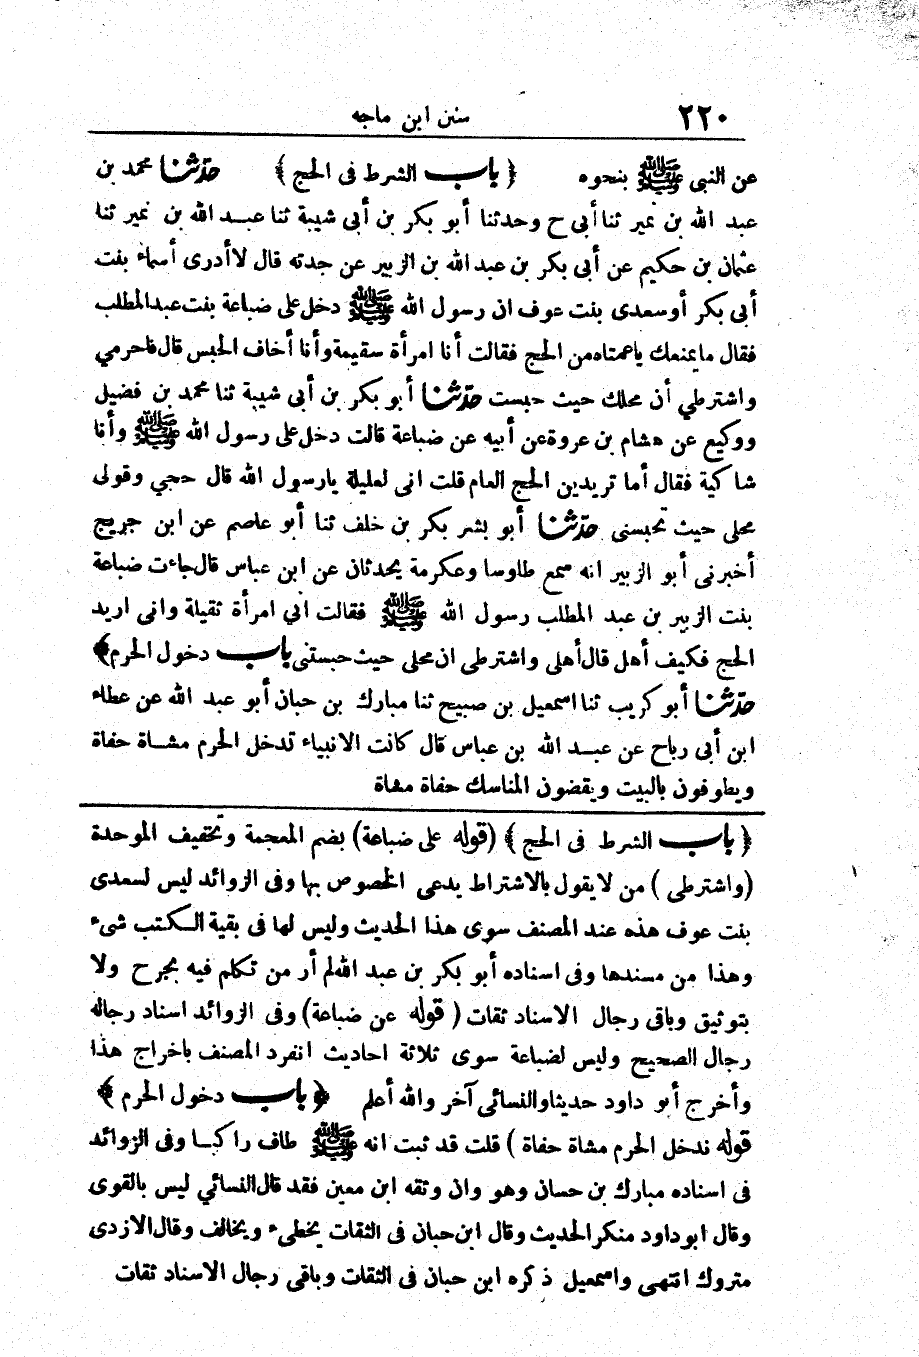 ٢٢٠
سنن ابن ماجه
عن النبي ﷺ بنحوه ﴿ باب الشرط فى الحج ﴾ حدّثنا محمد بن
عبد الله بن نمير ثنا أبي ح وحدثنا أبو بكر بن أبى شيبة ثنا عبد الله بن نمير ثنا
عثمان بن حكيم عن أبى بكر بن عبد الله بن الزبير عن جدته قال لاأدرى أسماء بنت
أبى بكر أوسعدى بنت عوف ان رسول الله ﷺ دخل على ضباعة بنت عبدالمطلب
فقال مايمنعك ياعمتاه من الحج فقالت أنا امرأة سقيمة وأنا أخاف الحبس قال فاحرمي
واشترطي أن محلك حيث حبست حدّثنا أبو بكر بن أبى شيبة ثنا محمد بن فضيل
ووكيع عن هشام بن عروة عن أبيه عن ضباعة قالت دخل على رسول الله ﷺ وأنا
شاكية فقال أما تريدين الحج العام قلت انى لعليلة يارسول الله قال حجي وقولى
محلى حيث تحبسنى حدّثنا أبو بشر بكر بن خلف ثنا أبو عاصم عن ابن جريج
أخبرنى أبو الزبير انه سمع طاوسا وعكرمة يحدثان عن ابن عباس قال جاءت ضباعة
بنت الزبير بن عبد المطلب رسول الله ﷺ فقالت اني امرأة ثقيلة وانى اريد
الحج فكيف أهل قال أهلى واشترطى ان محلي حيث حبستنى باب دخول الحرم ﴾
حدّثنا أبو كريب ثنا اسمعيل بن صبيح ثنا مبارك بن حبان أبو عبد الله عن عطاء
ابن أبى رباح عن عبد الله بن عباس قال كانت الانبياء تدخل الحرم مشاة حفاة
ويطوفون بالبيت ويقضون المناسك حفاة مشاة
﴿ باب الشرط فى الحج ﴾ (قوله على ضباعة) بضم المعجمة وتخفيف الموحدة
(واشترطى ) من لايقول بالاشتراط يدعى الخصوص بها وفى الزوائد ليس لسعدى
بنت عوف هذه عند المصنف سوى هذا الحديث وليس لها فى بقية الكتب شىء
وهذا من مسندها وفى اسناده أبو بكر بن عبد الله لم أر من تكلم فيه بجرح ولا
بتوثيق وباقى رجال الاسناد ثقات ( قوله عن ضباعة) وفى الزوائد اسناد رجاله
رجال الصحيح وليس لضباعة سوى ثلاثة احاديث انفرد المصنف باخراج هذا
وأخرج أبو داود حديثا والنسائى آخر والله أعلم ﴿ باب دخول الحرم ﴾
قوله تدخل الحرم مشاة حفاة ) قلت قد ثبت انه ﷺ طاف راكبا وفى الزوائد
فى اسناده مبارك بن حسان وهو وان وثقه ابن معين فقد قال النسائي ليس بالقوى
وقال ابوداود منكر الحديث وقال ابن حبان فى الثقات يخطىء ويخالف وقال الازدى
متروك انتهى واسمعيل ذكره ابن حبان فى الثقات وباقى رجال الاسناد ثقات